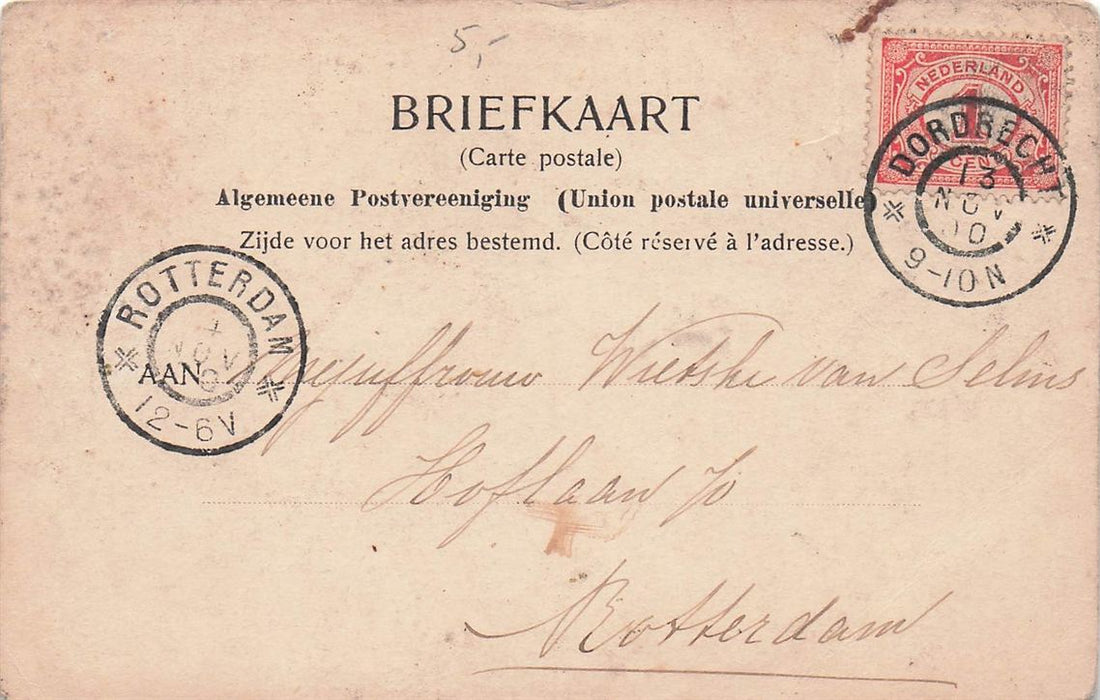 5,-
BRIEFKAART
(Carte postale)
Algemeene Postvereeniging (Union postale universelle)
Zijde voor het adres bestemd. (Côté réservé à l'adresse.)
NEDERLAND
1
CENT
DORDRECHT
13
NOV
00
9-10N
ROTTERDAM
NOV
12-6V
AAN
Mejuffrouw Wietske van Selms
Hoflaan
Rotterdam